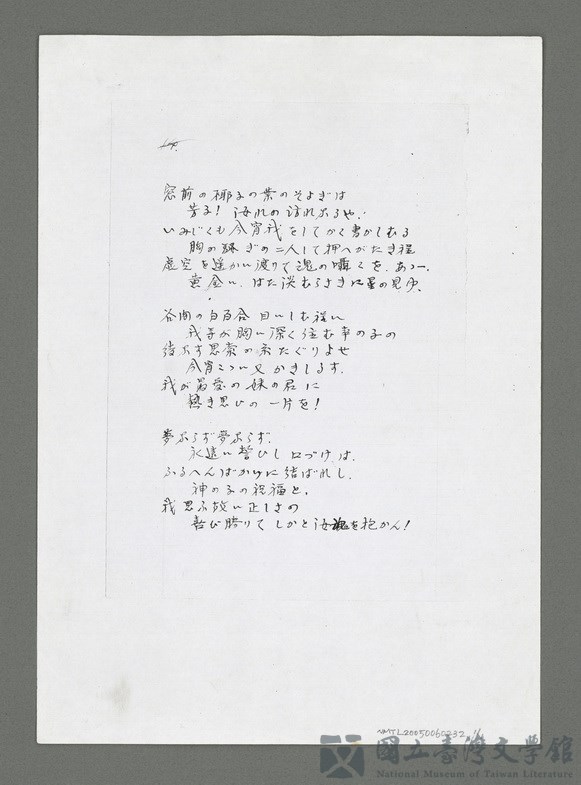 窓前の椰子の葉のそよぎは
芳子! 汝れの訪れなるや.
いみじくも今宵我をしてかく書かしむる
胸の騒ぎの二人して押へがたき程
虚空を遥かに渡りて魂の囁くを. あゝー.
黄金に. はた淡むらさきに星の見ゆ.
谷間の白百合 目にしむ程に
我等が胸に深く住む幸の子の
絶えず思索の糸たぐりよせ
今宵こゝに又かきしるす.
我が最愛の妹の君に
熱き思ひの一片を!
夢ならず夢ならず.
永遠に誓ひし口づけは.
ふるへんばかりに結ばれし.
神の子の祝福と.
我思ふ故に正しきの
喜び勝りてしかと汝魂を抱かん!
NMTL20050060232
國立臺灣文學館
National Museum of Taiwan Literature